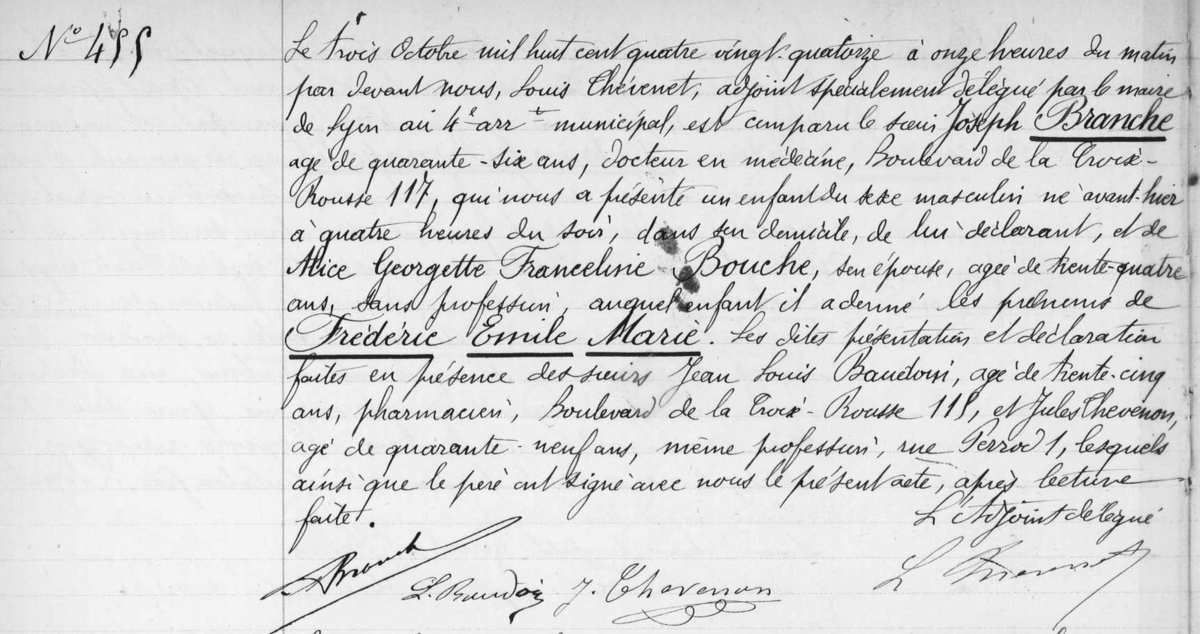 N° 455
Le trois Octobre mil huit cent quatre vingt-quatorze à onze heures du matin
par devant nous, Louis Chevenet, adjoint spécialement délégué par le maire
de Lyon au 4e arrt municipal, est comparu le sieur Joseph Branche
agé de quarante-six ans, docteur en médecine, Boulevard de la Croix-
Rousse 117, qui nous a présenté un enfant du sexe masculin né avant-hier
à quatre heures du soir, dans son domicile, de lui déclarant, et de
Alice Georgette Franceline Bouche, son épouse, agée de trente-quatre
ans, sans profession, auquel enfant il a donné les prénoms de
Frédéric Emile Marie. Les dites présentation et déclaration
faites en présence des sieurs Jean Louis Baudoin, agé de trente-cinq
ans, pharmacien, Boulevard de la Croix-Rousse 115, et Jules Thevenon,
agé de quarante-neuf ans, même profession, rue Perrod 1, lesquels
ainsi que le père ont signé avec nous le présent acte, après lecture
faite.
L'Adjoint délégué
Branche
L. Baudoin J. Thevenon